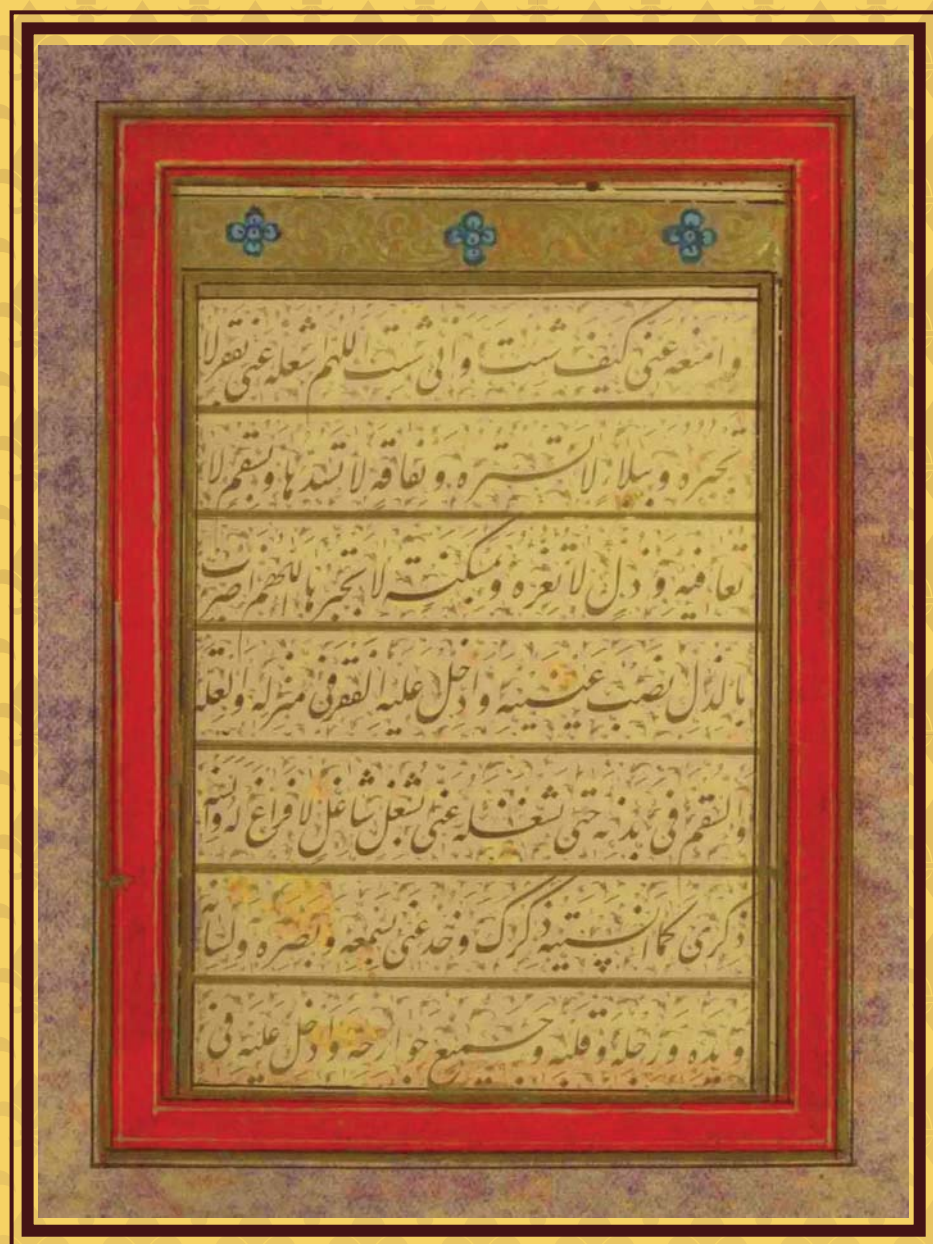 وامنعه عنی کیف شئت وانی شئت اللهم اشغله عنی بفقر لا
تجبره وببلاء لا تستره وبفاقة لا تسدها وبسقم لا
تعافیه وذل لا تعزه ومسکنة لا تجبرها اللهم اضرب
بالذل نصب عینیه وادخل علیه الفقر فی منزله والعلة
والسقم فی بدنه حتی تشغله عنی بشغل شاغل لا فراغ له وانسه
ذکری کما انسیته ذکرک وخذ عنی بسمعه وبصره ولسانه
ویده ورجله وقلبه وجمیع جوارحه وادخل علیه فی